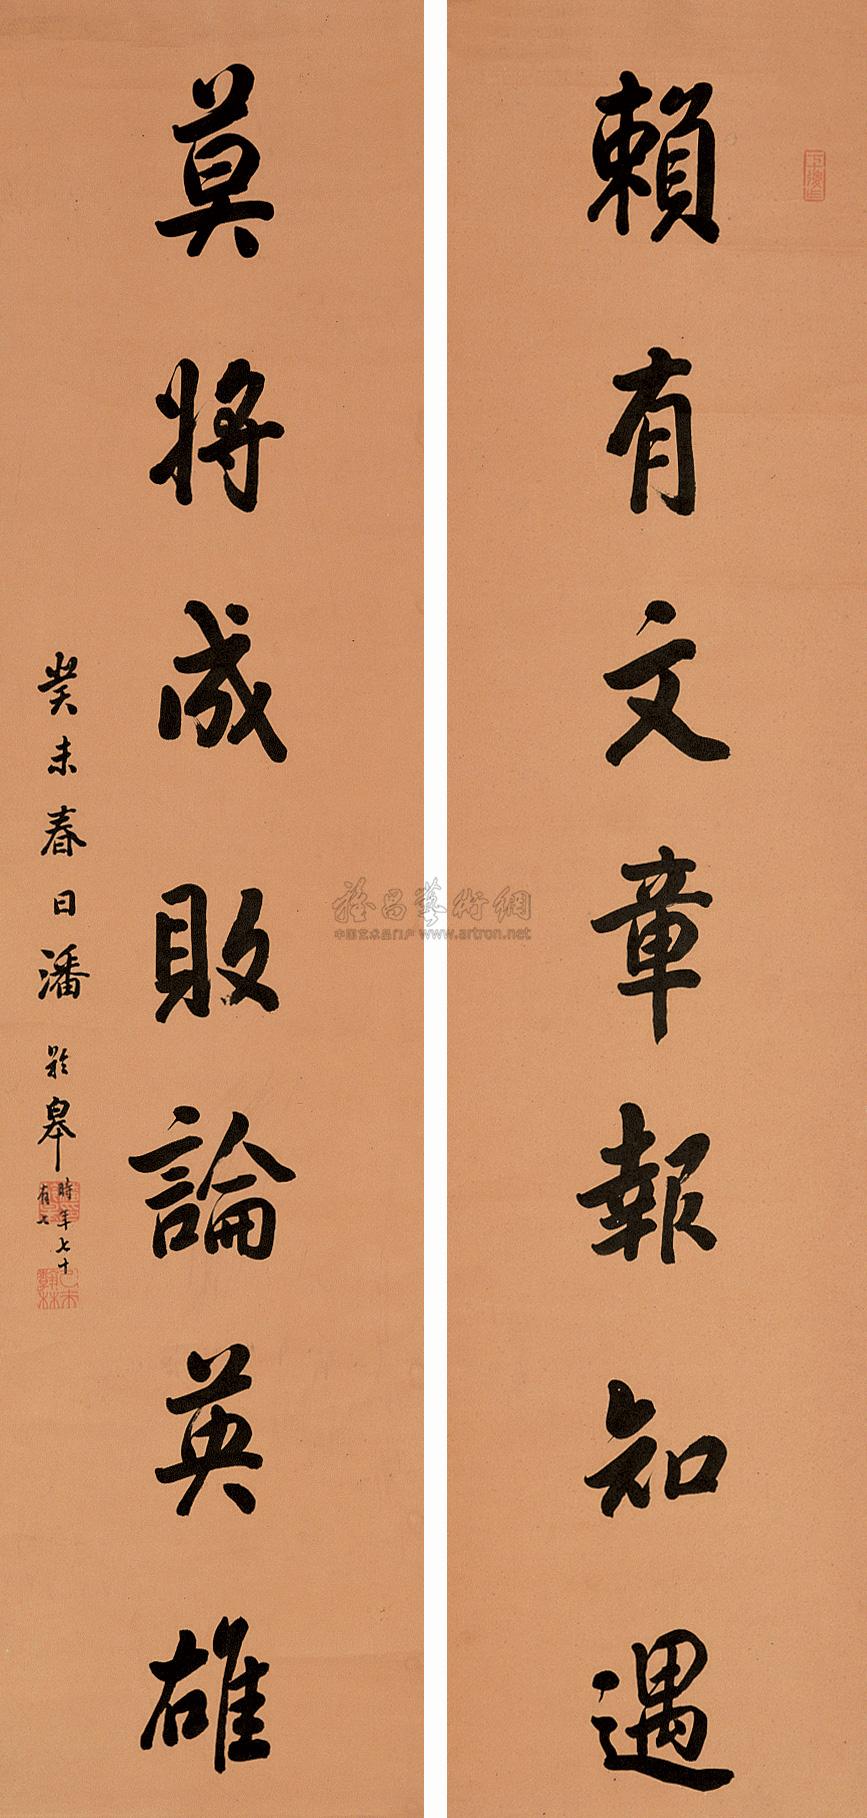 賴有文章報知遇
莫將成敗論英雄
癸未春日潘齡皋
時年七十
有七
己未
翰林
雅昌藝術網
中国艺术品门户 www.artron.net